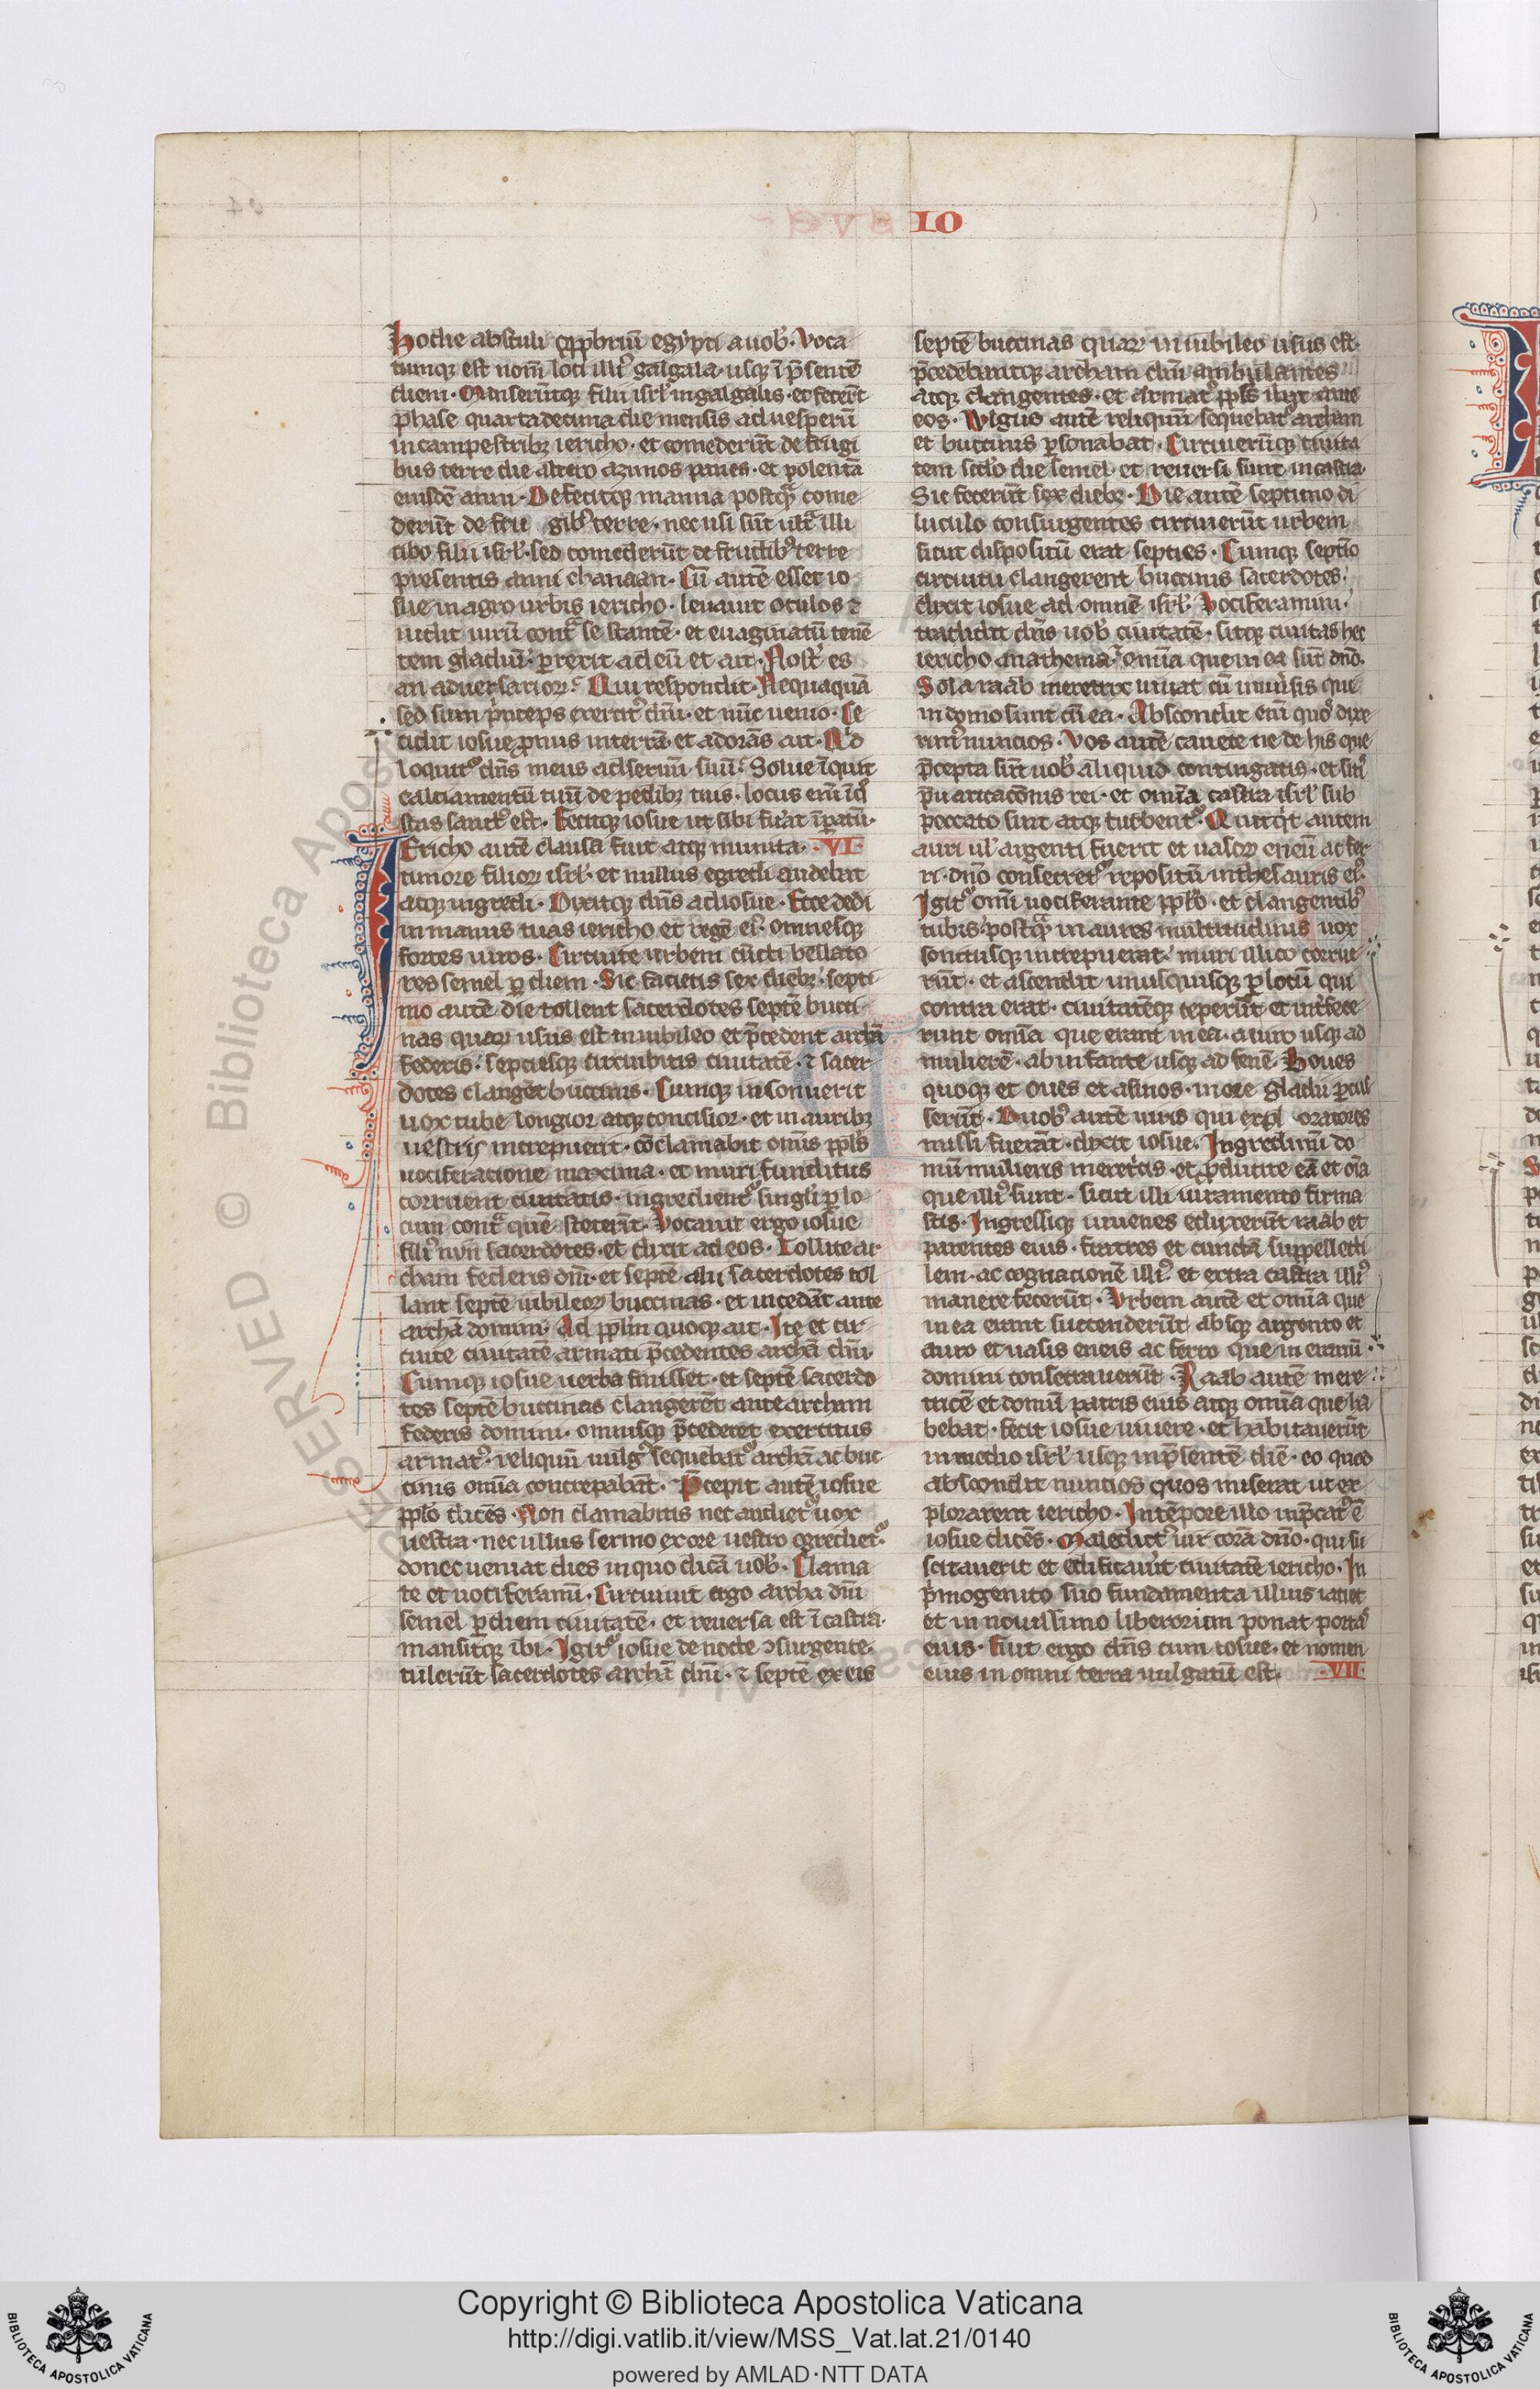 IO
Hodie abstuli opprobriũ egypti a uob᷒. Voca
tumq; est nom̃ loci illi᷒ galgala. usq; ĩ p̃sentẽ
diem. Manserũtq; filii isrl̃ in galgalis. et fecerũt
phase quartadecima die mensis ad uesperũ
in campestrib; iericho. et comederũt de frugi
bus terre die altero azimos panes. et polentã
eiusdẽ anni. Defecitq; manna postq̃ come
derũt de fru gib᷒ terre. nec usi sũt ult̃ illi
cibo filii isrl̃. sed comederũt de frugib᷒ terre
presentis anni chanaan. Cũ autẽ esset io
sue in agro urbis iericho. leuauit oculos ⁊
uidit uirũ cont̃ se stantẽ. et euaginatũ tenẽ
tem gladiũ. perexit ad eũ et ait. Nost̃ es
an aduersarioꝝ. Qui respondit. Nequaquã
sed sum p̃nceps exercit᷒ dñi. et nũc uenio. Ce
cidit iosue p̃nus in terrã. et adorãs ait. Qͥd
loquit᷒ dñs meus ad seruũ suũ. Solue ĩquit
calciamentũ tuũ de pedib; tuis. locus eni ĩ qͦ
stas sanct᷒ est. Fecitq; iosue ut sibi fũat ĩpatũ.
IEricho autẽ clausa fuit atq; munita. .VI.
timore filioꝝ isrl̃. et nullus egredi audebat
atq; ingredi. Dixitq; dñs ad iosue. Ecce dedi
in manus tuas iericho et regẽ ei᷒. omnesq;
fortes uiros. Circuite urbem cũcti bellato
res semel ꝑ diem. Sic facietis sex dieb;. septi
mo autẽ die tollent sacerdotes septẽ bucci
nas quaꝝ usus est in iubileo et p̃cedent archã
federis. septiesq; circuibitis ciuitatẽ. ⁊ sacer
dotes clangẽt buccinis. Cumq; insonuerit
uox tube longior atq; concisior. et in aurib;
uestris increpuerit. cõclamabit omñis ppl̃s
uociferacione maxima. et muri funditus
corruent ciuitatis. ingredient᷒ singl̃i ꝑ lo
cum cont̃ quẽ steterĩt. Vocauit ergo iosue
fili᷒ nun sacerdotes. et dixit ad eos. Tollite ar
cham federis dñi. et septẽ alii sacerdotes tol
lant septẽ iubileoꝝ buccinas. et incedãt ante
archã domini. Ad ppl̃m quoq; ait. Ite et cir
cuite ciuitatẽ armati p̃cedentes archã dñi.
Cumq; iosue uerba finisset. et septẽ sacerdo
tes septẽ buccinas clangerẽt ante archam
federis domini. omnisq; p̃cederet exercitus
armat᷒. reliquũ uulg᷒ sequebat᷒ archã ac buc
cinis omĩa concrepabãt. P̃cepit autẽ iosue
ppl̃o dicẽs. Non clamabitis nec audiet᷒ uox
uestra. nec ullus sermo ex ore uestro egrediet᷒.
donec ueniat dies in quo dicã uob᷒. Clama
te et uociferamĩ. Circuiuit ergo archa dñi
semel ꝑ diem ciuitatẽ. et reuersa est ĩ castra.
mansitq; ibi. Igit᷒ iosue de nocte ꝯsurgente.
tulerũt sacerdotes archã dñi. ⁊ septẽ ex eis
septẽ buccinas quaꝝ in iubileo usus est.
p̃cedebantq; archam dñi ambulantes
atq; clangentes. et armat᷒ ppl̃s ibat ante
eos. Wlgus autẽ reliquũ sequebat᷒ archam
et buccinis ꝑsonabat. Circuierũtq; ciuita
tem scd̃o die semel. et reuersi sunt in castra.
Sic fecerũt sex dieb;. Die autẽ septimo di
luculo consurgentes circuierũt urbem
sicut dispositũ erat septies. Cumq; septĩo
circuitu clangerent buccinis sacerdotes.
dixit iosue ad omnẽ isrl̃. Vociferamini.
tradidit dñs uob᷒ ciuitatẽ. sitq; ciuitas hec
iericho anathema. omĩa que in ea sũt dño.
Sola raab meretrix uiuat cũ uniũsis que
in domo sunt cũ ea. Abscondit eni quos dixe
rim᷒ nuncios. Vos autẽ cauete ne de his que
p̃cepta sũt uob᷒ aliquid contingatis. et sitis
p̃uaricacõnis rei. et omĩa castra isrl̃ sub
peccato sint atq; turbent᷒. Quicq̃t autem
auri ul̃ argenti fuerit et uasoꝝ eneũ ac fer
ri. dño consecret᷒ repositũ in thesauris ei᷒.
Igit᷒ omñi uociferante ppl̃o. et clangentib᷒
tubis. postq̃ in aures multitudinis uox
sonitusq; increpuerat. muri illico corrue
rũt. et ascendit unusquisq; ꝑ locũ qui
contra erat. ciuitatẽq; ceperũt et int̃fece
runt omĩa que erant in ea. a uiro usq; ad
mulierẽ. ab infante usq; ad senẽ. Boues
quoq; et oues et asinos. in ore gladii ꝑcus
serũt. Duob᷒ autẽ uiris qui expl oratores
missi fuerãt. dixit iosue. Ingredimĩ do
mũ mulieris meret̃cis. et ꝓducite eã et oĩa
que illi᷒ sunt. sicut illi iuramento firma
stis. Ingressiq; iuuenes eduxerũt raab et
parentes eius. fratres et cunctã suppellecti
lem. ac cognacionẽ illi᷒. et extra castra isrl̃
manere fecerũt. Vrbem autẽ et omĩa que
in ea erant succenderũt absq; argento et
auro et uasis eneis ac ferro que in erariũ
domini consecrauerũt. Raab autẽ mere
tricẽ et domũ patris eius atq; omĩa que ha
bebat. fecit iosue uiuere. et habitauerũt
in medio isrl̃ usq; in p̃sentẽ diẽ. eo quod
absconderit nuncios quos miserat ut ex
plorarent iericho. In tẽpore illo inp̃cat᷒ ẽ
iosue dicẽs. Maledict᷒ uir corã dño. qui su
scitauerit et edificauit̃ ciuitatẽ iericho. In
p̃mogenito suo fundamenta illius iaciet
et in nouissimo liberorum ponat portas
eius. Fuit ergo dñs cum iosue. et nomen
eius in omni terra uulgatũ est. .VII.
Copyright © Biblioteca Apostolica Vaticana
http://digi.vatlib.it/view/MSS_Vat.lat.21/0140
powered by AMLAD·NTT DATA
BIBLIOTECA APOSTOLICA VATICANA
BIBLIOTECA APOSTOLICA VATICANA